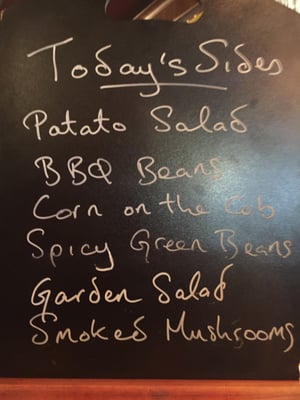 Today's Sides
Patato Salad
BBQ Beans
Corn on the Cob
Spicy Green Beans
Garden Salad
Smoked Mushrooms